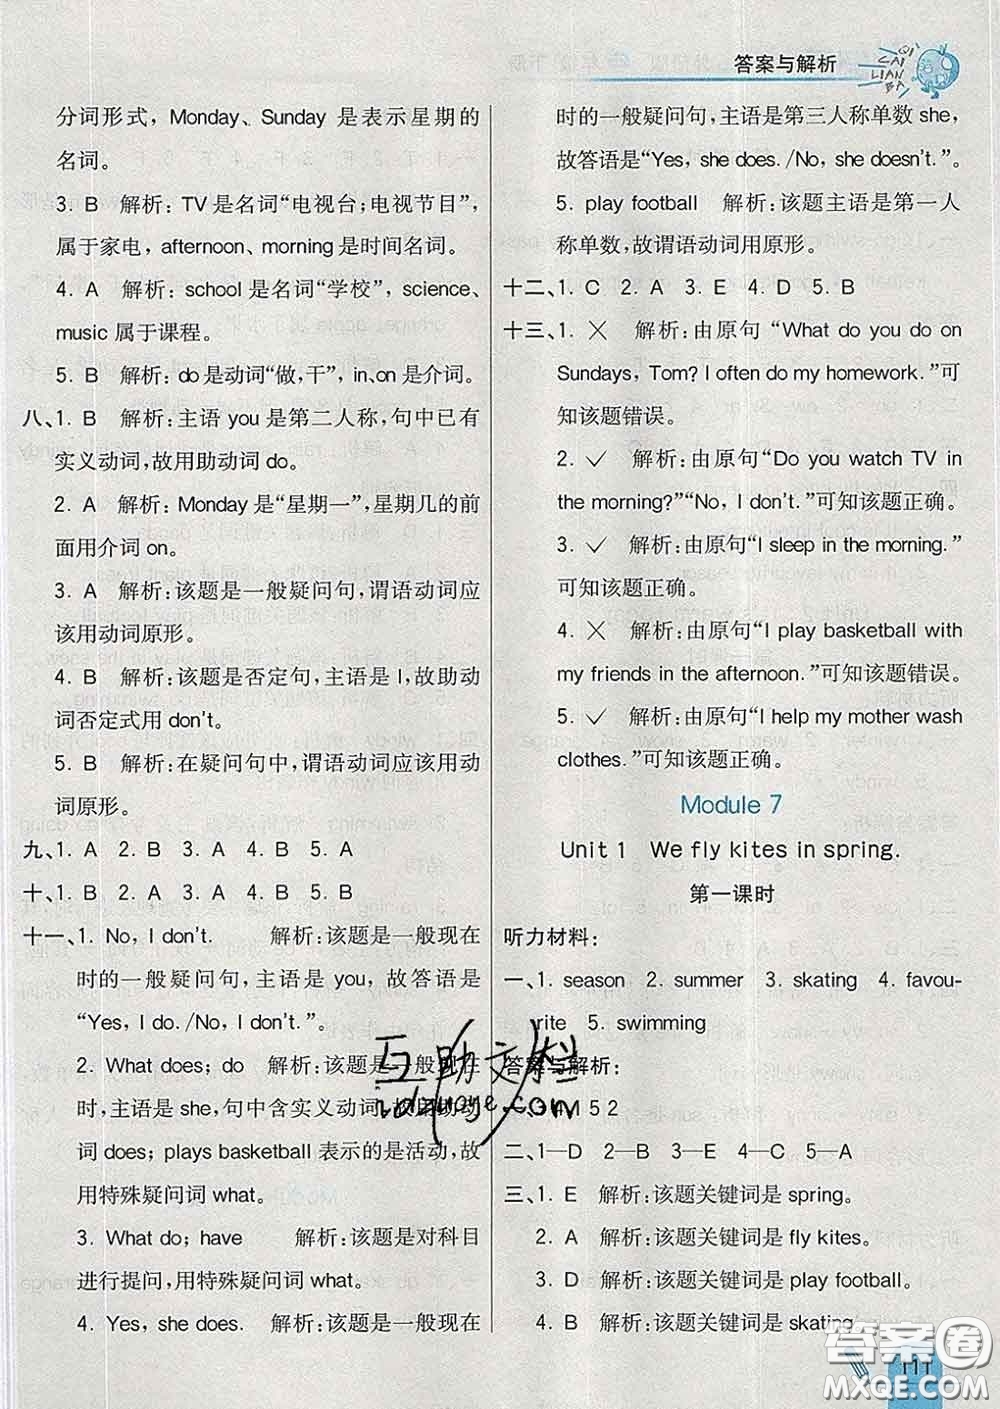 答案与解析
QI
CAI
LIAN
BA
分词形式，Monday、Sunday 是表示星期的
名词。
3. B　解析：TV是名词“电视台；电视节目”，
属于家电，afternoon、morning是时间名词。
4. A　解析：school是名词“学校”，science、
music 属于课程。
5. B　解析：do是动词“做，干”，in、on是介词。
八、1. B　解析：主语 you 是第二人称，句中已有
实义动词，故用助动词 do。
2. A　解析：Monday 是“星期一”，星期几的前
面用介词 on。
3. A　解析：该题是一般疑问句，谓语动词应
该用动词原形。
4. B　解析：该题是否定句，主语是 I，故助动
词否定式用 don't。
5. B　解析：在疑问句中，谓语动词应该用动
词原形。
九、1. A　2. B　3. A　4. B　5. A
十、1. B　2. A　3. A　4. B　5. B
十一、1. No, I don't.　解析：该题是一般现在
时的一般疑问句，主语是 you，故答语是
“Yes, I do. /No, I don't.”。
2. What does; do　解析：该题是一般现在
时，主语是 she，句中含实义动词，故用助动
词 does; plays basketball 表示的是活动，故
用特殊疑问词 what。
3. What do; have　解析：该题是对科目
进行提问，用特殊疑问词 what。
4. Yes, she does.　解析：该题是一般现在
时的一般疑问句，主语是第三人称单数 she，
故答语是“Yes, she does. /No, she doesn't.”。
5. play football　解析：该题主语是第一人
称单数，故谓语动词用原形。
十二、1. C　2. A　3. E　4. D　5. B
十三、1. ×　解析：由原句“What do you do on
Sundays, Tom? I often do my homework.”可
知该题错误。
2. ✓　解析：由原句“Do you watch TV in
the morning?”“No, I don't.”可知该题正确。
3. ✓　解析：由原句“I sleep in the morning.”
可知该题正确。
4. ×　解析：由原句“I play basketball with
my friends in the afternoon.”可知该题错误。
5. ✓　解析：由原句“I help my mother wash
clothes.”可知该题正确。
Module 7
Unit 1　We fly kites in spring.
第一课时
听力材料：
一、1. season　2. summer　3. skating　4. favou-
rite　5. swimming
答案与解析：
5 2
二、1—D　2—B　3—E　4—C　5—A
三、1. E　解析：该题关键词是 spring。
2. A　解析：该题关键词是 fly kites。
3. D　解析：该题关键词是 play football。
4. B　解析：该题关键词是 skating。
互助文档
.com
答案圈
MXQE.COM
111